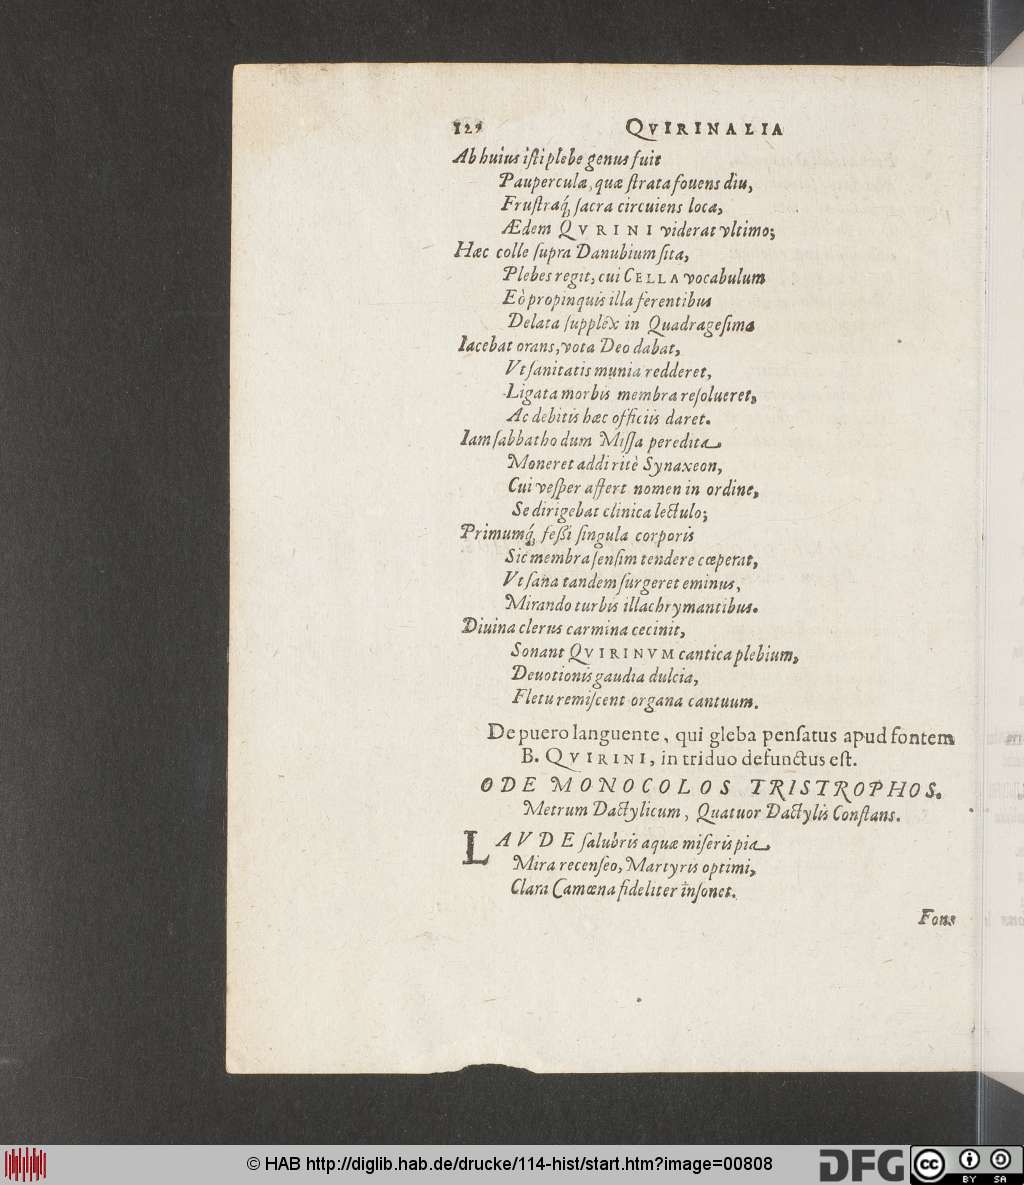 129 QVIRINALIA
Ab huius isti plebe genus fuit
Pauperculæ, quæ strata fouens diu,
Frustraq́; sacra circuiens loca,
Ædem QVRINI viderat vltimo;
Hæc colle supra Danubium sita,
Plebes regit, cui CELLA vocabulum
Eò propinquis illa ferentibus
Delata supplex in Quadragesima
Iacebat orans, vota Deo dabat,
Vt sanitatis munia redderet,
Ligata morbis membra resolueret,
Ac debitis hæc officiis daret.
Iam sabbatho dum Missa peredita
Moneret addi ritè Synaxeon,
Cui vesper affert nomen in ordine,
Se dirigebat clinica lectulo;
Primumq́; fessi singula corporis
Sic membra sensim tendere cœperat,
Vt sana tandem surgeret eminus,
Mirando turbis illachrymantibus.
Diuina clerus carmina cecinit,
Sonant QVIRINVM cantica plebium,
Deuotionis gaudia dulcia,
Fletu remiscent organa cantuum.
De puero languente, qui gleba pensatus apud fontem
B. QVIRINI, in triduo defunctus est.
ODE MONOCOLOS TRISTROPHOS.
Metrum Dactylicum, Quatuor Dactylis Constans.
LAVDE salubris aquæ miseris pia
Mira recenseo, Martyris optimi,
Clara Camœna fideliter insonet.
Fons
© HAB http://diglib.hab.de/drucke/114-hist/start.htm?image=00808
DFG
cc BY SA